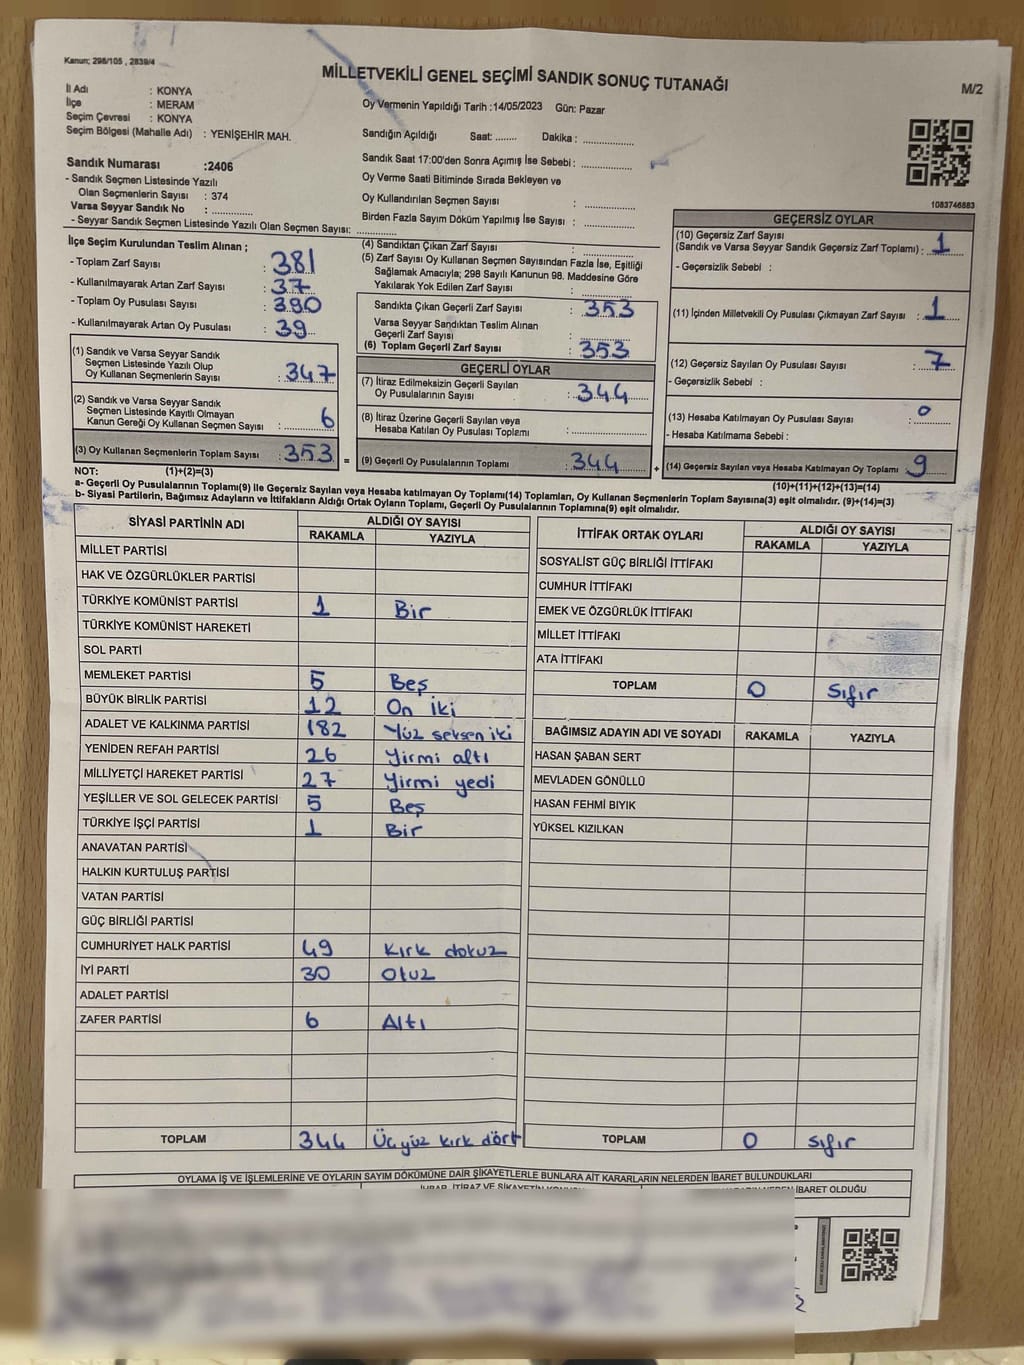 Kanun; 298/105 , 2839/4
MİLLETVEKİLİ GENEL SEÇİMİ SANDIK SONUÇ TUTANAĞI
M/2
İl Adı : KONYA
İlçe : MERAM
Seçim Çevresi : KONYA
Seçim Bölgesi (Mahalle Adı) : YENİŞEHİR MAH.
Oy Vermenin Yapıldığı Tarih :14/05/2023 Gün: Pazar
Sandığın Açıldığı Saat: ........ Dakika : ................
Sandık Saat 17:00'den Sonra Açımış İse Sebebi: ................
Oy Verme Saati Bitiminde Sırada Bekleyen ve
Oy Kullandırılan Seçmen Sayısı : ................
Birden Fazla Sayım Döküm Yapılmış İse Sayısı : ................
1083746883
Sandık Numarası :2406
- Sandık Seçmen Listesinde Yazılı
Olan Seçmenlerin Sayısı : 374
Varsa Seyyar Sandık No : ..............
- Seyyar Sandık Seçmen Listesinde Yazılı Olan Seçmen Sayısı: ..............
İlçe Seçim Kurulundan Teslim Alınan ;
- Toplam Zarf Sayısı : 381
- Kullanılmayarak Artan Zarf Sayısı : 37
- Toplam Oy Pusulası Sayısı : 390
- Kullanılmayarak Artan Oy Pusulası : 39
(1) Sandık ve Varsa Seyyar Sandık
Seçmen Listesinde Yazılı Olup
Oy Kullanan Seçmenlerin Sayısı : 347
(2) Sandık ve Varsa Seyyar Sandık
Seçmen Listesinde Kayıtlı Olmayan
Kanun Gereği Oy Kullanan Seçmen Sayısı : 6
(3) Oy Kullanan Seçmenlerin Toplam Sayısı : 353 =
(4) Sandıktan Çıkan Zarf Sayısı : ................
(5) Zarf Sayısı Oy Kullanan Seçmen Sayısından Fazla İse, Eşitliği
Sağlamak Amacıyla; 298 Sayılı Kanunun 98. Maddesine Göre
Yakılarak Yok Edilen Zarf Sayısı : ................
Sandıkta Çıkan Geçerli Zarf Sayısı : 353
Varsa Seyyar Sandıktan Teslim Alınan
Geçerli Zarf Sayısı : ................
(6) Toplam Geçerli Zarf Sayısı : 353
GEÇERLİ OYLAR
(7) İtiraz Edilmeksizin Geçerli Sayılan
Oy Pusulalarının Sayısı : 344
(8) İtiraz Üzerine Geçerli Sayılan veya
Hesaba Katılan Oy Pusulası Toplamı : ................
(9) Geçerli Oy Pusulalarının Toplamı : 344 +
GEÇERSİZ OYLAR
(10) Geçersiz Zarf Sayısı
(Sandık ve Varsa Seyyar Sandık Geçersiz Zarf Toplamı) : 1
- Geçersizlik Sebebi :
(11) İçinden Milletvekili Oy Pusulası Çıkmayan Zarf Sayısı : 1
(12) Geçersiz Sayılan Oy Pusulası Sayısı : 7
- Geçersizlik Sebebi :
(13) Hesaba Katılmayan Oy Pusulası Sayısı : 0
- Hesaba Katılmama Sebebi :
(14) Geçersiz Sayılan veya Hesaba Katılmayan Oy Toplamı : 9
NOT: (1)+(2)=(3)
(10)+(11)+(12)+(13)=(14)
a- Geçerli Oy Pusulaların Toplamı(9) İle Geçersiz Sayılan veya Hesaba katılmayan Oy Toplamı(14) Toplamları, Oy Kullanan Seçmenlerin Toplam Sayısına(3) eşit olmalıdır. (9)+(14)=(3)
b- Siyasi Partilerin, Bağımsız Adayların ve İttifakların Aldığı Ortak Oyların Toplamı, Geçerli Oy Pusulalarının Toplamına(9) eşit olmalıdır.
SİYASİ PARTİNİN ADI ALDIĞI OY SAYISI
RAKAMLA YAZIYLA
MİLLET PARTİSİ
HAK VE ÖZGÜRLÜKLER PARTİSİ
TÜRKİYE KOMÜNİST PARTİSİ 1 Bir
TÜRKİYE KOMÜNİST HAREKETİ
SOL PARTİ
MEMLEKET PARTİSİ 5 Beş
BÜYÜK BİRLİK PARTİSİ 12 On iki
ADALET VE KALKINMA PARTİSİ 182 Yüz seksen iki
YENİDEN REFAH PARTİSİ 26 Yirmi altı
MİLLİYETÇİ HAREKET PARTİSİ 27 Yirmi yedi
YEŞİLLER VE SOL GELECEK PARTİSİ 5 Beş
TÜRKİYE İŞÇİ PARTİSİ 1 Bir
ANAVATAN PARTİSİ
HALKIN KURTULUŞ PARTİSİ
VATAN PARTİSİ
GÜÇ BİRLİĞİ PARTİSİ
CUMHURİYET HALK PARTİSİ 49 Kırk dokuz
İYİ PARTİ 30 Otuz
ADALET PARTİSİ
ZAFER PARTİSİ 6 Altı
TOPLAM 344 Üç yüz kırk dört
İTTİFAK ORTAK OYLARI ALDIĞI OY SAYISI
RAKAMLA YAZIYLA
SOSYALİST GÜÇ BİRLİĞİ İTTİFAKI
CUMHUR İTTİFAKI
EMEK VE ÖZGÜRLÜK İTTİFAKI
MİLLET İTTİFAKI
ATA İTTİFAKI
TOPLAM 0 Sıfır
BAĞIMSIZ ADAYIN ADI VE SOYADI RAKAMLA YAZIYLA
HASAN ŞABAN SERT
MEVLADEN GÖNÜLLÜ
HASAN FEHMİ BIYIK
YÜKSEL KIZILKAN
TOPLAM 0 Sıfır
OYLAMA İŞ VE İŞLEMLERİNE VE OYLARIN SAYIM DÖKÜMÜNE DAİR ŞİKAYETLERLE BUNLARA AİT KARARLARIN NELERDEN İBARET BULUNDUKLARI
İBARET OLDUĞU